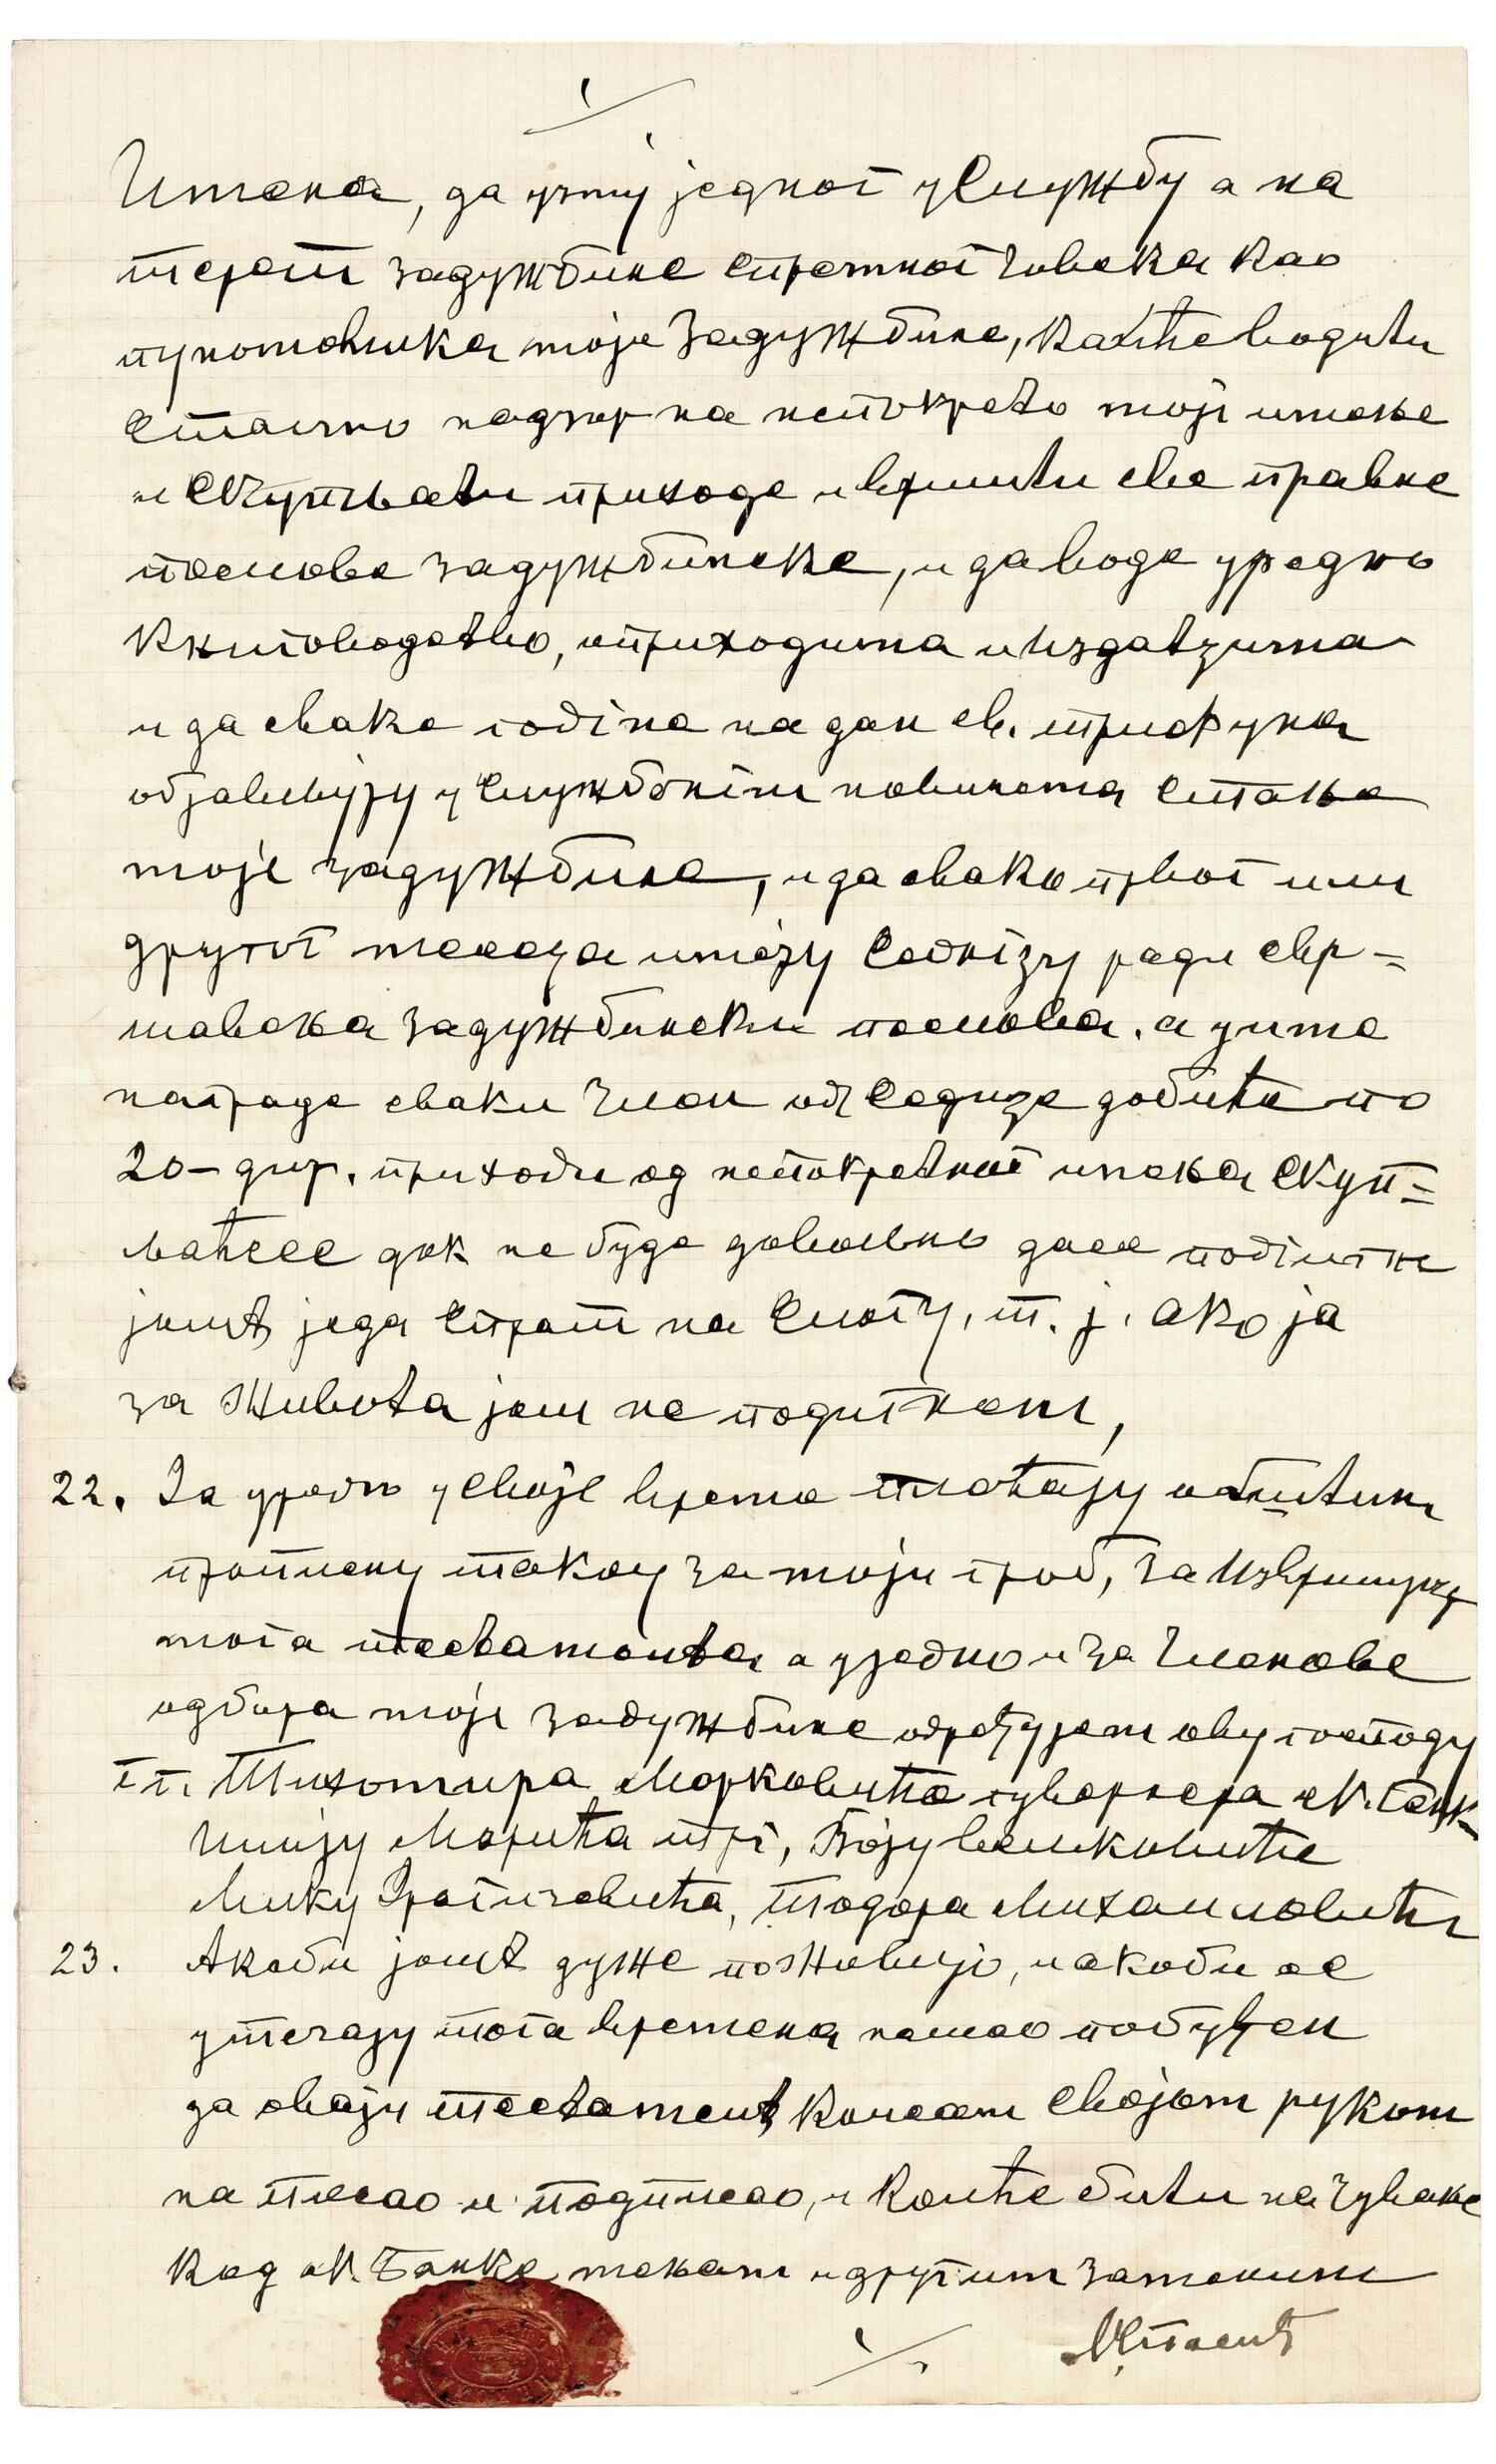 Имена, да узму једног у службу а на
терет задужбине спремног човека као
пуномоћника моје задужбине, који ће водити
стално надзор на непокрето моје имање
и скупљати приходе и вршити све правне
послове задужбинске, и да води уредно
књиговодство, о приходима и издатцима
и да сваке године на дан св. Трифуна
објављују у службеним новинама стање
моје задужбине, и да свако првог или
другог месеца имају седницу ради свр=
шавања задужбински послова. а у име
награде сваки члан од седнице добиће по
20– дин. приходи од непокретног имања скуп=
љаћесе док не буде довољно дасе подигне
јошт једа спрат на Слогу, т. ј. ако ја
за живота још не подигнем,
22. За уредно у своје време плаћају општини
прописну таксу за моју гроб, за извршиоце
мога тестамента а уједно и за чланове
одбора моје задужбине одређујем ову господу
г г. Тихомира Марковића гувернера н. Банке
Илију Марића трг, Боју Величковића
Мику Драгичевића, Тодора Михаиловића
23. Акоби јошт дуже поживијо, и акоби се
у течају тога времена нашао побуђен
да овају тестамент који сам својом руком
на писао и подписао, и који ће бити на чување
код н. Банке, мењам и другим заменим
М. Стасић